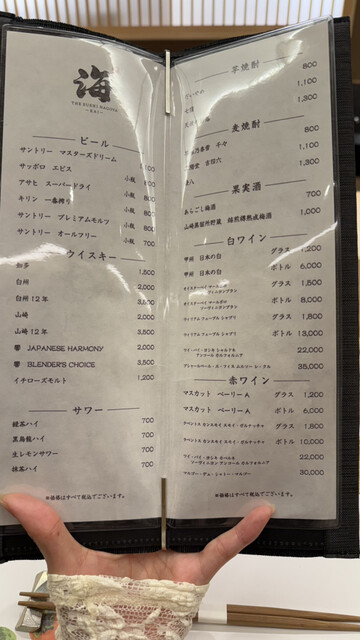 海
THE SUSHI NAGOYA
ビール
サントリー マスターズドリーム
サッポロ エビス 小瓶
アサヒ スーパードライ 小瓶 600
キリン 一番搾り 小瓶 800
サントリー プレミアムモルツ 小瓶 800
サントリー オールフリー 小瓶 700
ウイスキー
知多 1,500
白州 2,000
白州12年 3,500
山崎 2,000
山崎12年 3,500
響 JAPANESE HARMONY 2,000
響 BLENDER'S CHOICE 3,500
イチローズモルト 1,200
サワー
緑茶ハイ 700
黒烏龍ハイ 700
生レモンサワー 700
抹茶ハイ 700
※価格はすべて税込でございます。
芋焼酎
800
1,100
1,300
麦焼酎
800
1,100
1,300
果実酒
あらごし梅酒 700
山崎蒸留所貯蔵 焙煎樽熟成梅酒 1,000
白ワイン
甲州 日本の白 グラス 1,200
甲州 日本の白 ボトル 6,000
グラス 1,500
ボトル 8,000
ウィリアム フェーブル シャブリ グラス 1,800
ウィリアム フェーブル シャブリ ボトル 13,000
22,000
35,000
赤ワイン
マスカット ベーリーA グラス 1,200
マスカット ベーリーA ボトル 6,000
グラス 1,800
ボトル 10,000
22,000
30,000
※価格はすべて税込でございます。